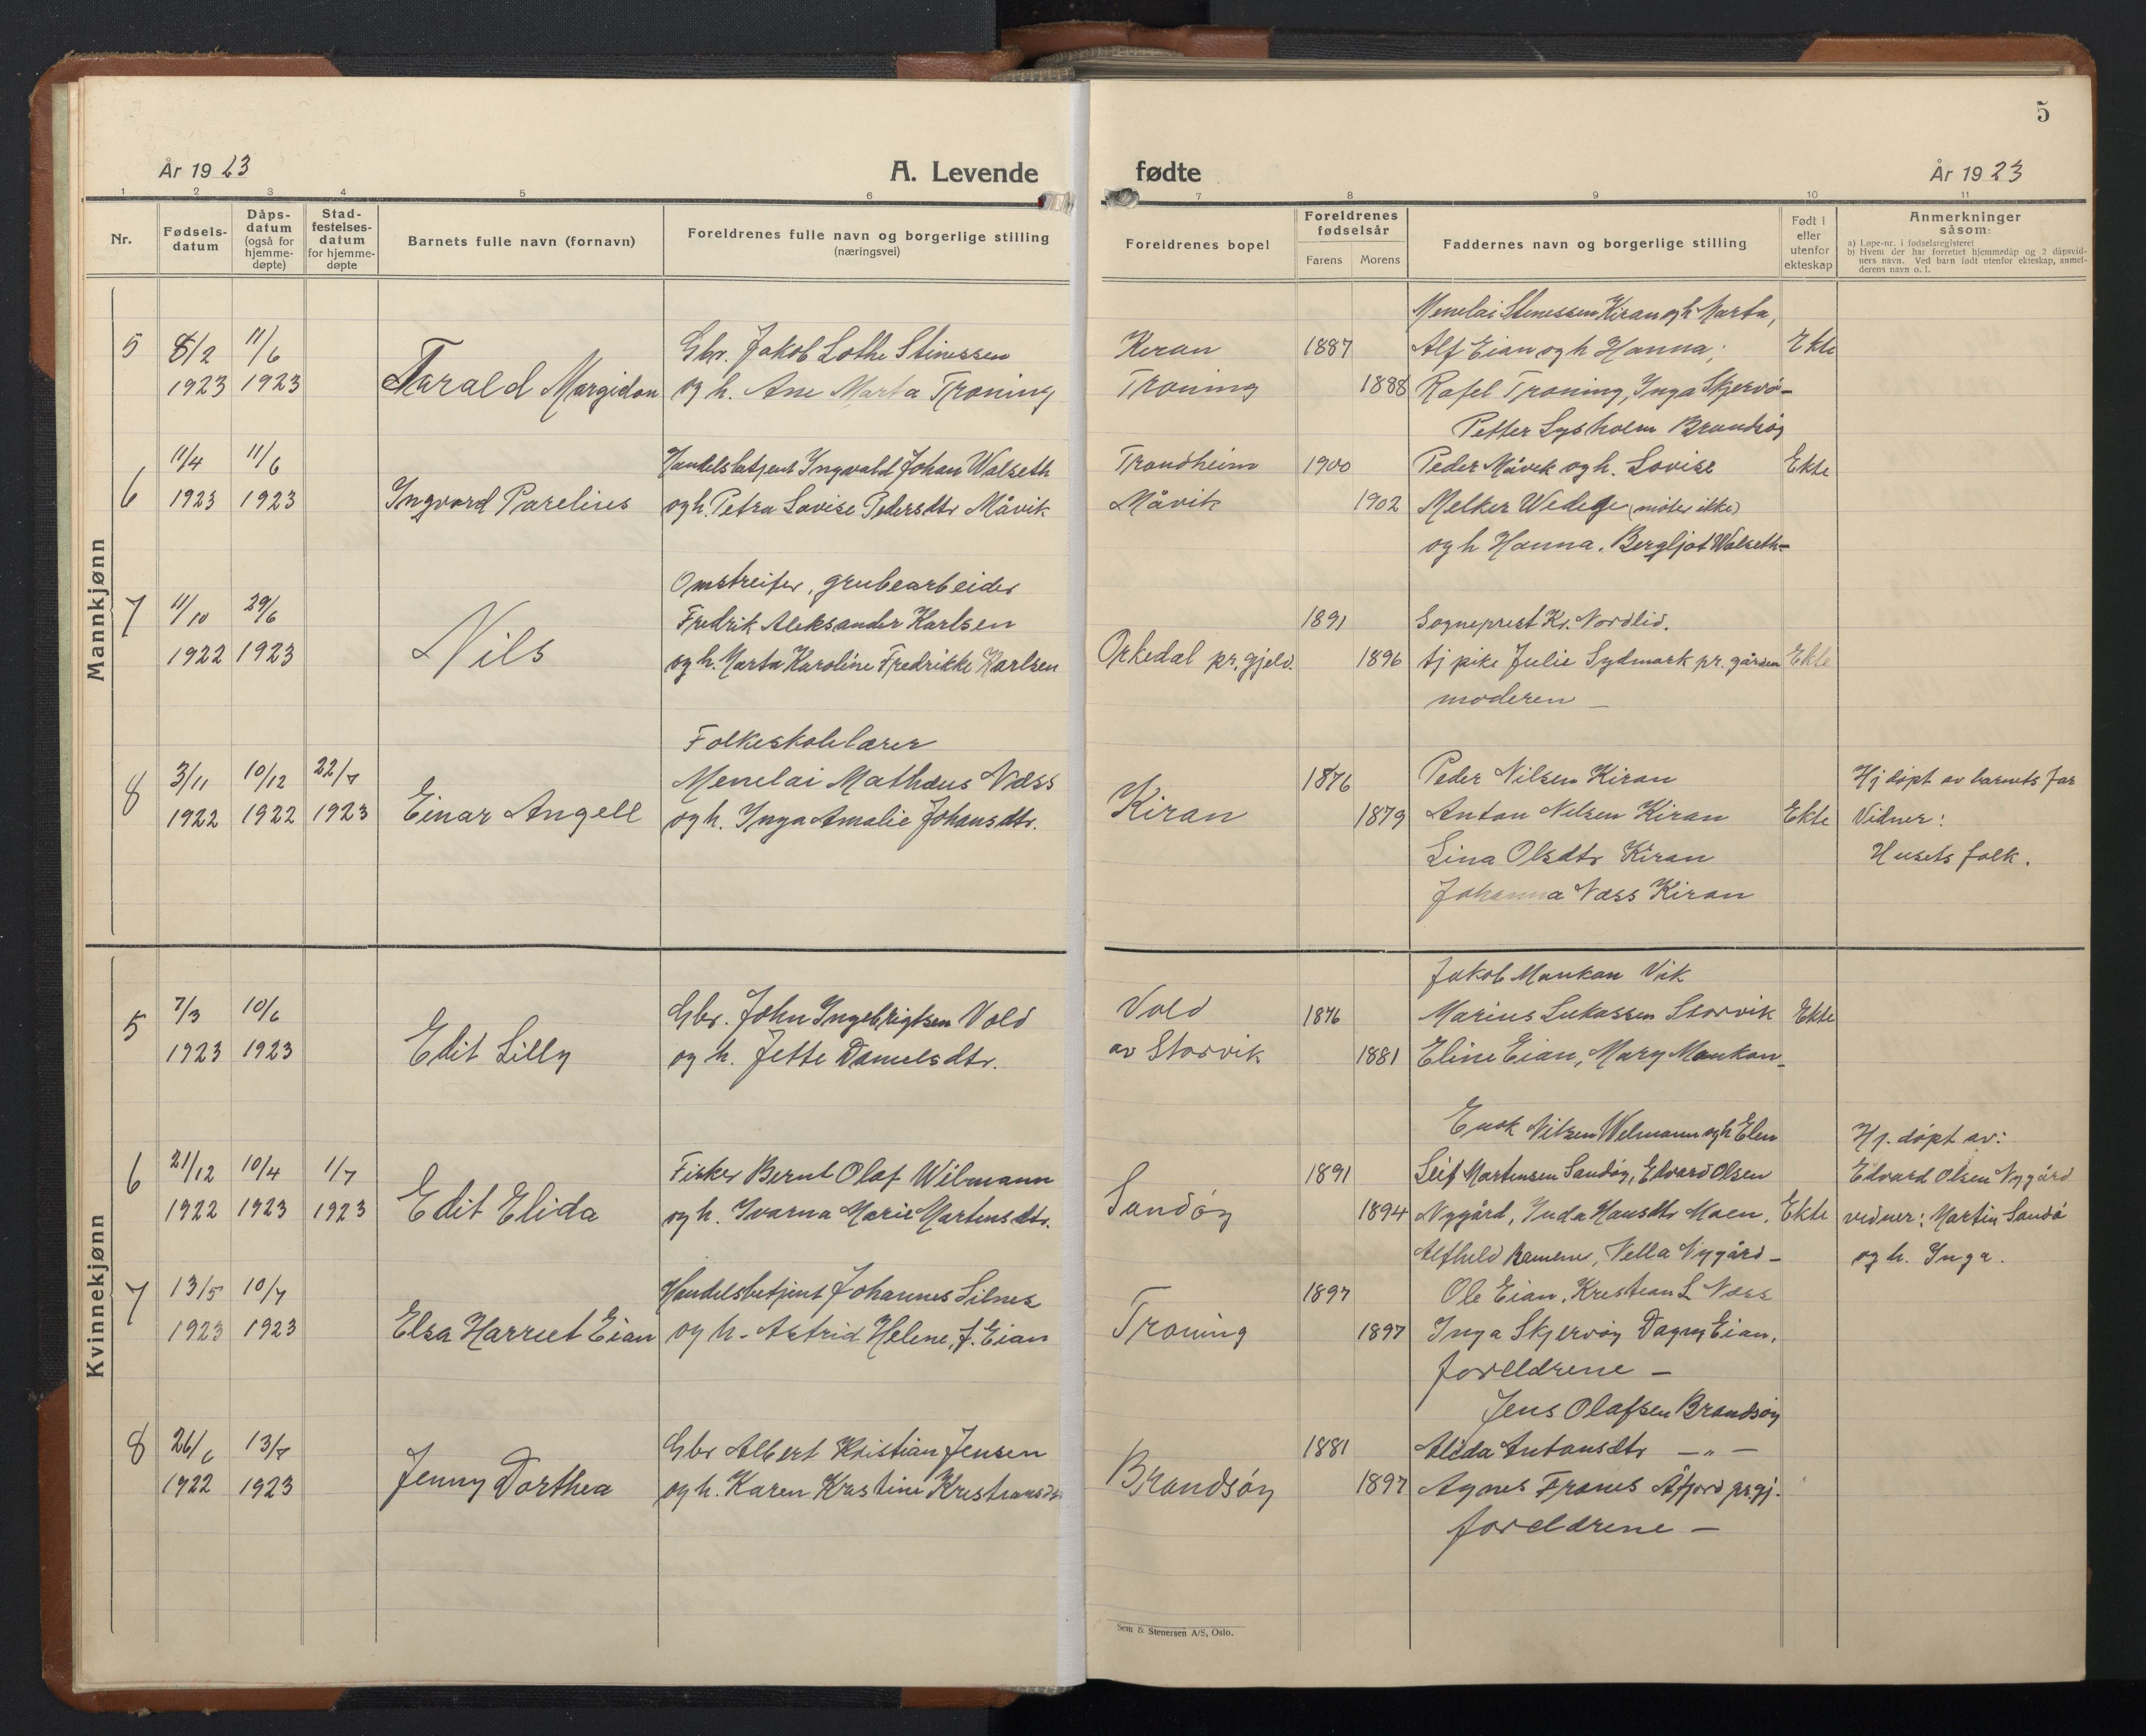 5
År 1923
A. Levende fødte
År 1923
1 2 3 4 5 6 7 8 9 10 11
Nr.
Fødsels-datum
Dåps-datum (også for hjemme-døpte)
Stad-festelses-datum for hjemme-døpte
Barnets fulle navn (fornavn)
Foreldrenes fulle navn og borgerlige stilling (næringsvei)
Foreldrenes bopel
Foreldrenes fødselsår
Farens Morens
Faddernes navn og borgerlige stilling
Født i eller utenfor ekteskap
Anmerkninger såsom:
a) Løpe-nr. i fødselsregisteret
b) Hvem der har forrettet hjemmedåp og 2 dåpsvid-
ners navn. Ved barn født utenfor ekteskap, anmel-
derens navn o. l.
Mannkjønn
5
8/2 11/6
1923 1923
Tarald Margidon
Gbr. Jakob Lothe Stinessen
og h. Ane Marta Troning
Kiran
Troning
1887
1888
Menelai Stenessen Kiran og h Marta,
Alf Eian og h Hanna;
Rafel Troning, Inga Skjervö-
Petter Lysholm Brandsøy
Ekte
6
11/4 11/6
1923 1923
Ingvard Parelius
Handelsbetjent Ingvald Johan Walseth
og h. Petra Lovise Pedersdtr Måvik
Trondheim
Måvik
1900
1902
Peder Måvik og h. Lovise
Melker Wedege (möter ikke)
og h Hanna. Bergljot Walseth-
Ekte
7
11/10 29/6
1922 1923
Nils
Omstreifer, grubearbeider
Fredrik Aleksander Karlsen
og h. Marta Karoline Fredrikke Karlsen
Orkedal pr.gjeld.
1891
1896
Sogneprest Kr. Nordlid.
tj pike Julie Sydmark pr. gården
moderen -
Ekte
8
3/11 10/12 22/7
1922 1922 1923
Einar Angell
Folkeskolelærer
Menelai Mathæus Næss
og h. Inga Amalie Johansdtr.
Kiran
1876
1879
Peder Nilsen Kiran
Anton Nilsen Kiran
Lina Olsdtr Kiran
Johanna Næss Kiran
Ekte
Hj döpt av barnets far
Vidner:
Husets folk.
Kvinnekjønn
5
7/3 10/6
1923 1923
Edit Lilly
Gbr. John Ingebrigtsen Vold
og h. Jette Danielsdtr.
Vold
av Storvik
1876
1881
Jakob Mankan Vik
Marius Lukassen Storvik
Eline Eian, Mary Mankan-
Ekte
6
21/12 10/4 1/7
1922 1923 1923
Edit Elida
Fisker Bernt Olaf Wilmann
og h. Ivarna Marie Martinsdtr.
Sandøy
1891
1894
Enok Nilsen Welmann og h Elen
Leif Martinsen Sandøy, Edvard Olsen
Nygård, Inda Hansdtr Moen.
Alfhild Ramene, Vella Nygård-
Ekte
Hj. döpt av:
Edvard Olsen Nygård
vidner: Martin Sandö
og h. Inga.
7
13/5 10/7
1923 1923
Elsa Harriet Eian
Handelsbetjent Johannes Silnes
og h. Astrid Helene, f. Eian
Troning
1897
1897
Ole Eian, Kristian L Næss
Inga Skjervöy Dagny Eian,
foreldrene -
8
26/6 13/7
1922 1923
Jenny Dorthea
Gbr Albert Kristian Jensen
og h. Karen Kristine Kristiansdtr
Brandsøy
1881
1897
Jens Olafsen Brandsøy
Alida Antonsdtr - " -
Agnes Franes Åfjord pr.gj.
foreldrene -
Sem & Stenersen A/S, Oslo.